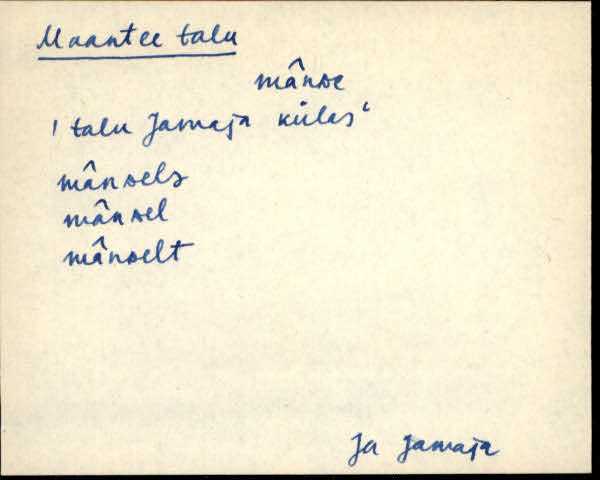 Maantee talu
mânᴅe
' talu Jamaja külas '
mânᴅels
mânᴅel
mânᴅelt
Ja Jamaja